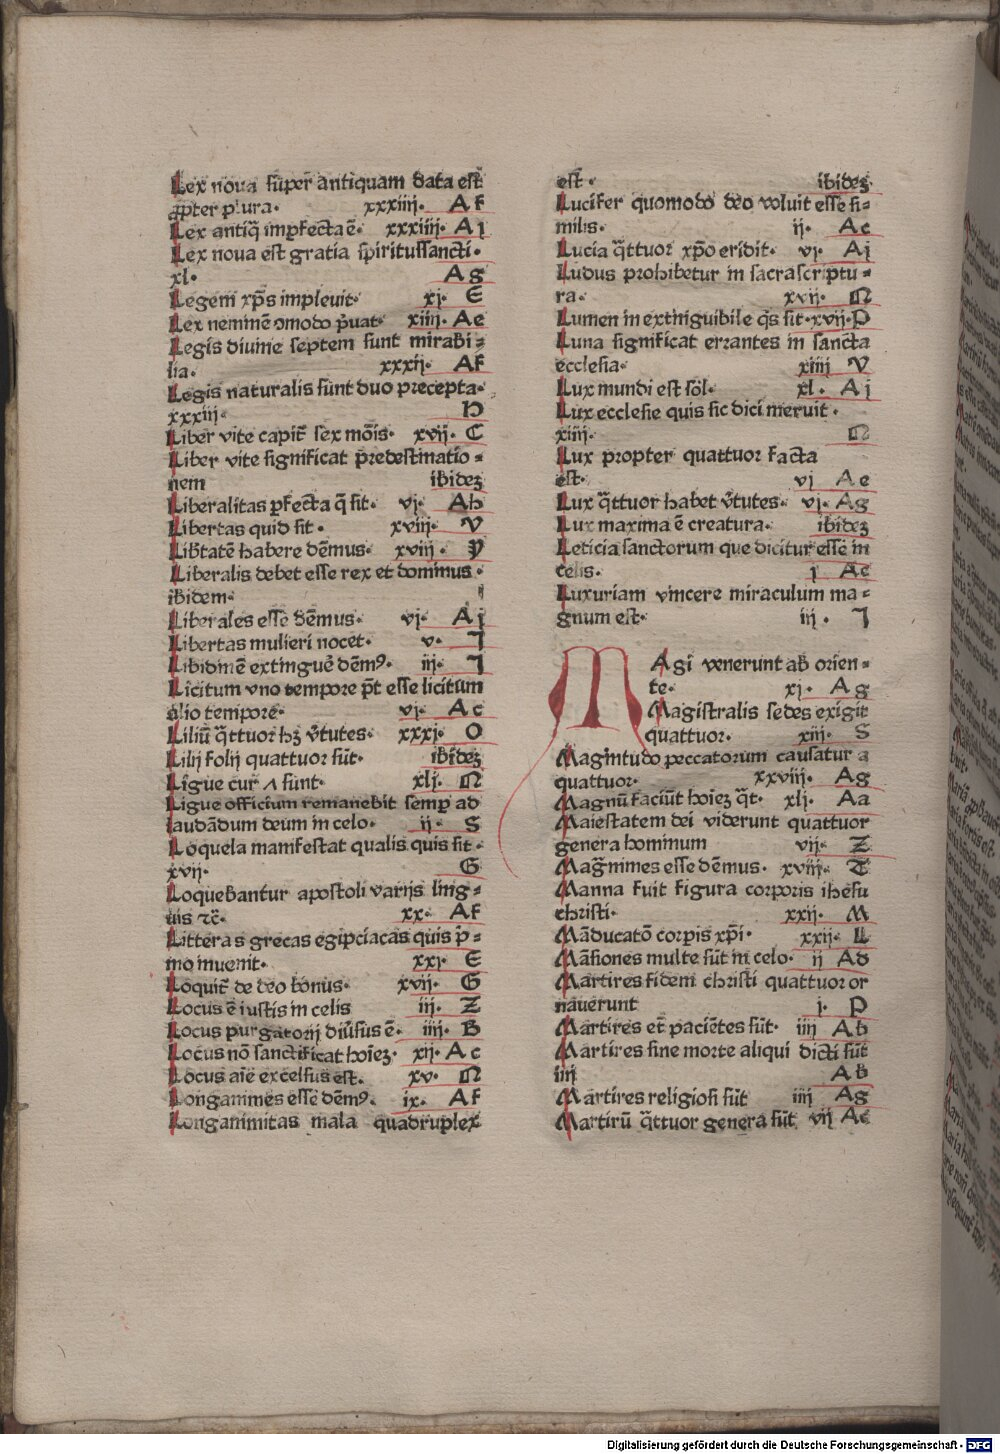 Lex noua super antiquam data est
ꝓpter plura· xxxiiij· Af
Lex antiq̄ imꝑfecta ē· xxxiiij· Aj
Lex noua est gratia spiritussancti·
xl· Ag
Legem xp̄s impleuit· xj· E
Lex neminē ɔmodo p̄uat· xiiij· Ae
Legis diuine septem sunt mirabi⸗
lia· xxxij· Af
Legis naturalis sunt duo precepta·
xxxiij· H
Liber vite capit᷑ sex mōis· xvij· C
Liber vite significat predestinatio⸗
nem ibidez
Liberalitas ꝑfecta q̄ sit· vj· Ah
Libertas quid sit· xviij· V
Lib̄tatē habere dēmus· xviij· Y
Liberalis debet esse rex et dominus·
ibidem·
Liberales esse dēmus· vj· Aj
Libertas mulieri nocet· v· I
Libidinē extinguē dēmꝰ· iij· I
Licitum vno tempore p̄t esse licitum
alio tempore· vj· Ac
Liliū q̄ttuor hꝫ v̄tutes· xxxj· O
Lilij folij quattuor sūt· ibidez
Līgue cur ʌ sunt· xlj· N
Ligue officium remanebit semꝑ ad
laudādum deum in celo· ij· S
Loquela manifestat qualis quis sit·
xvij· G
Loquebantur apostoli varijs ling⸗
uis ⁊c̄· xx· Af
Litteras grecas egipciacas quis p̄⸗
mo inuenit· xxj· E
Loquit᷑ de deo bonus· xvij· G
Locus ē iustis in celis iij· Z
Locus purgatorij diūsus ē· iiij· B
Locus nō sanctificat hoīez· xij· Ac
Locus aīe excelsus est· xv· N
Longanimes esse dēmꝰ· ix· Af
Longanimitas mala quadruplex
est· ibidez·
Lucifer quomodo deo voluit esse si⸗
milis· ij· Ac
Lucia q̄ttuor xp̄o eridit· vj· Aj
Ludus prohibetur in sacrascriptu⸗
ra· xvij· N
Lumen in extinguibile q̄s sit·xvij·P
Luna significat errantes in sancta
ecclesia· xiiij V
Lux mundi est sol· xl· Aj
Lux ecclesie quis sic dici meruit·
xiiij· N
Lux propter quattuor facta
est· vj Ae
Lux q̄ttuor habet v̄tutes· vj· Ag
Lux maxima ē creatura· ibidez
Leticia sanctorum que dicitur esse in
celis· j Ac
Luxuriam vincere miraculum ma⸗
gnum est· iij· I
Magi venerunt ab orien⸗
te· xj· Ag
Magistralis sedes exigit
quattuor· xiij· S
Magintudo peccatorum causatur a
quattuor· xxviij· Ag
Magnū faciūt hoīez q̄t· xlj· Aa
Maiestatem dei viderunt quattuor
genera hominum vij· Z
Magn̄imes esse dēmus· xviij· T
Manna fuit figura corporis ihesu
christi· xxij· M
Māducatō corpis xp̄i· xxij· L
Māsiones multe sūt in celo· ij Ad
Martires fidem christi quattuor or
nauerunt j· P
Martires et paciētes sūt· iiij Ab
Martires sine morte aliqui dicti sūt
iiij Ab
Martires religiosi sūt iiij Ag
Martirū q̄ttuor genera sūt vij Ac
Digitalisierung gefördert durch die Deutsche Forschungsgemeinschaft - DFG